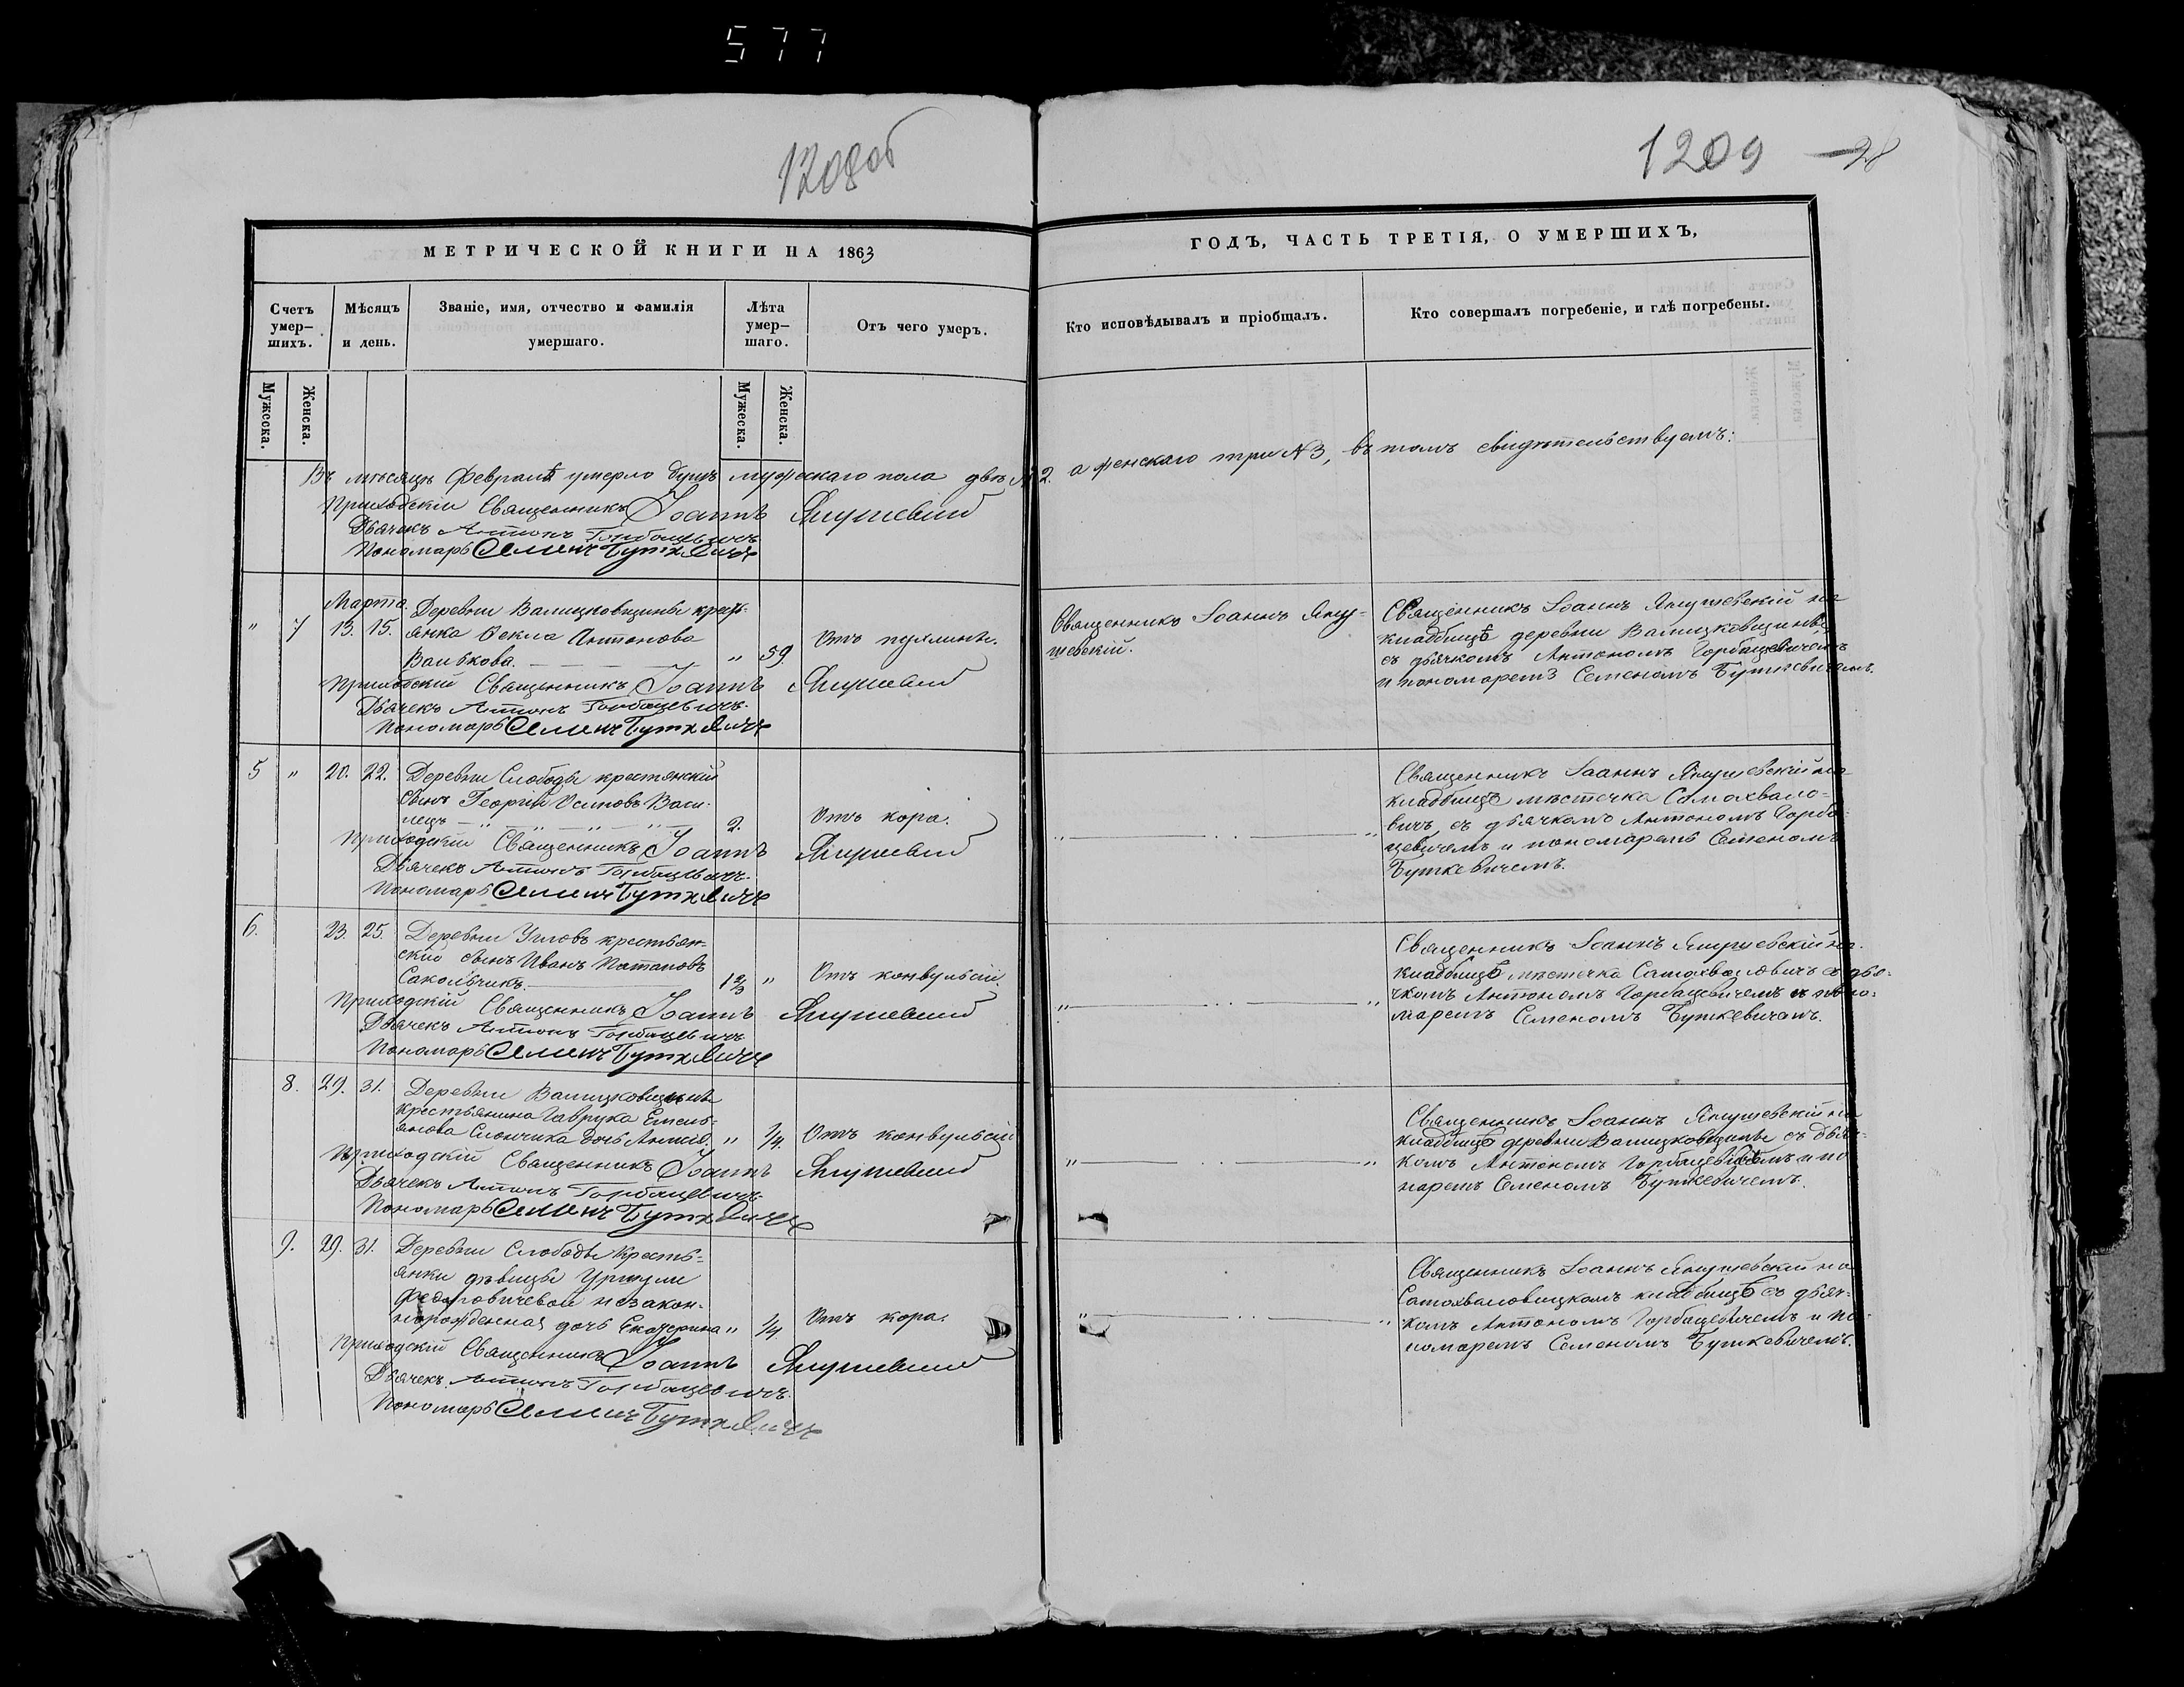 577
1208об
1209 28
МЕТРИЧЕСКОЙ КНИГИ НА 1863
Счетъ умер-шихъ.
Мѣсяцъ и день.
Званіе, имя, отчество и фамилія умершаго.
Лѣта умер-шаго.
Отъ чего умеръ.
Мужеска.
Женска.
Мужеска.
Женска.
ГОДЪ, ЧАСТЬ ТРЕТІЯ, О УМЕРШИХЪ,
Кто исповѣдывалъ и пріобщалъ.
Кто совершалъ погребеніе, и гдѣ погребены.
Въ мѣсяцѣ Февралѣ умерло душъ мужескаго пола двѣ №2. а женскаго три №3, въ томъ свидѣтельствуемъ:
Приходскій Священникъ Іоаннъ Янушевскій
Дьячекъ Антонъ Горбацевичъ
Пономарь Семенъ Буткевичъ
Марта.
" 7 13. 15. Деревни Валицковщины кресть-
янка Ѳекла Антонова
Валькова. " 59. Отъ пухлины.
Приходскій Священникъ Іоаннъ Янушевскій
Дьячекъ Антонъ Горбацевичъ.
Пономарь Семенъ Буткевичъ
Священникъ Іоаннъ Яну-
шевскій.
Священникъ Іоаннъ Янушевскій на
кладбищѣ деревни Валицковщины,
съ дьячкомъ Антономъ Горбацевичемъ
и пономаремъ Семеномъ Буткевичемъ.
5 " 20. 22. Деревни Слободы крестьянскій
сынъ Георгій Осиповъ Васи-
лецъ 2. Отъ кора.
Приходскій Священникъ Іоаннъ Янушевскій
Дьячекъ Антонъ Горбацевичъ.
Пономарь Семенъ Буткевичъ
" "
Священникъ Іоаннъ Янушевскій на
кладбищѣ мѣстечка Самохвало-
вичъ, съ дьячкомъ Антономъ Горба-
цевичемъ и пономаремъ Семеномъ
Буткевичемъ.
6. 23. 25. Деревни Угловъ крестьян-
скій сынъ Иванъ Потаповъ
1 2/3 " Отъ конвульсій.
Приходскій Священникъ Іоаннъ Янушевскій
Дьячекъ Антонъ Горбацевичъ
Пономарь Семенъ Буткевичъ
" "
Священникъ Іоаннъ Янушевскій на
кладбищѣ мѣстечка Самохваловичъ съ дья-
чкомъ Антономъ Горбацевичемъ и поно-
маремъ Семеномъ Буткевичемъ.
8. 29. 31. Деревни Валицковщины
крестьянина Гаврука Емель-
янова дочь " 1/4. Отъ конвульсій
Приходскій Священникъ Іоаннъ Янушевскій
Дьячекъ Антонъ Горбацевичъ
Пономарь Семенъ Буткевичъ
" "
Священникъ Іоаннъ Янушевскій на
кладбищѣ деревни Валицковщины съ дьяч-
комъ Антономъ Горбацевичемъ и по
наремъ Семеномъ Буткевичемъ.
9. 29. 31. Деревни Слободы кресть-
янки дѣвицы
незакон-
норожденная дочь Екатерина " 1/4 Отъ кора.
Приходскій Священникъ Іоаннъ Янушевскій
Дьячекъ Антонъ Горбацевичъ.
Пономарь Семенъ Буткевичъ
" "
Священникъ Іоаннъ Янушевскій на
Самохваловицкомъ кладбищѣ съ дьяч-
комъ Антономъ Горбацевичемъ и по-
номаремъ Семеномъ Буткевичемъ.